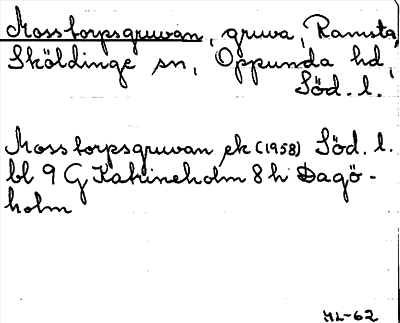 Mosstorpsgruvan, gruva, Ramsta,
Sköldinge sn, Oppunda hd,
Söd. l.
Mosstorpsgruvan ek (1958) Söd. l.
bl 9 G Katrineholm 8 h Dagö-
holm
ML-62